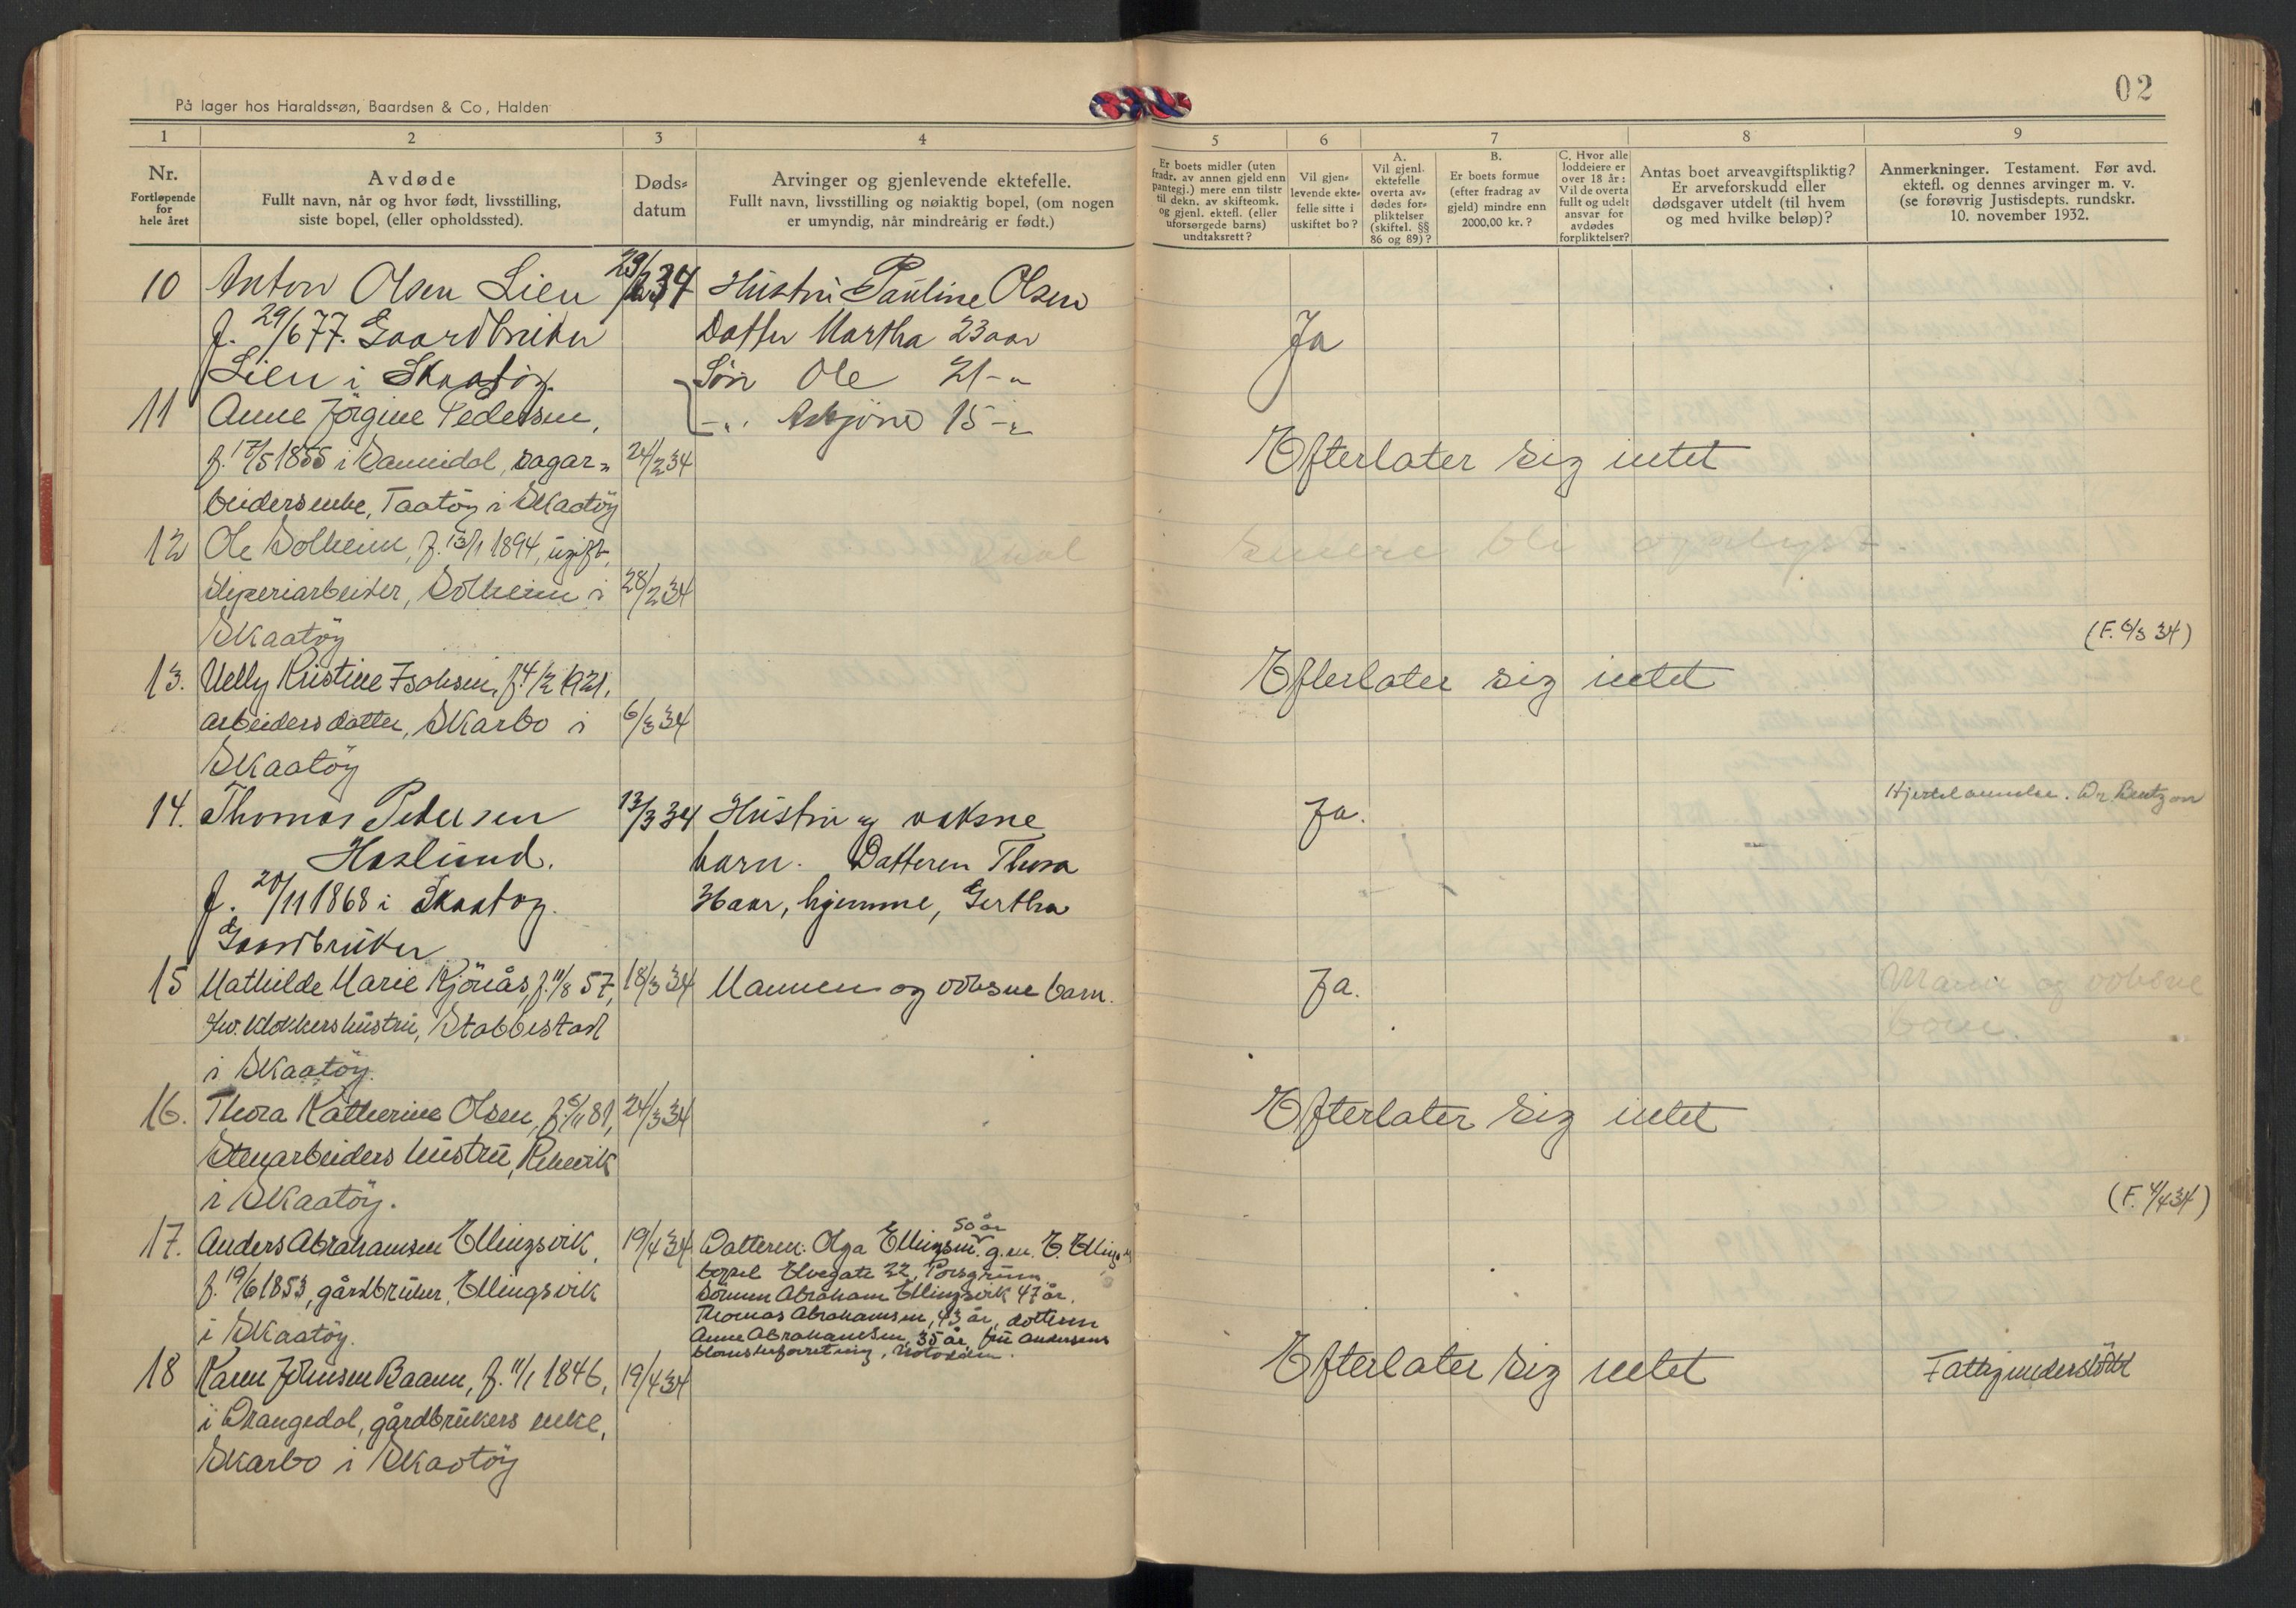 02
På lager hos Haraldssøn, Baardsen & Co, Halden
1 2 3 4 5 6 7 8 9
Nr.
Fortløpende
for
hele året
Avdøde
Fullt navn, når og hvor født, livsstilling,
siste bopel, (eller opholdssted).
Døds-
datum
Arvinger og gjenlevende ektefelle.
Fullt navn, livsstilling og nøiaktig bopel, (om nogen
er umyndig, når mindreårig er født.)
Er boets midler (uten
fradr. av annen gjeld enn
pantegj.) mere enn tilstr
til dekn. av skifteomk.
og gjenl. ektefl. (eller
uforsørgede barns)
undtaksrett?
Vil gjen-
levende ekte-
felle sitte i
uskiftet bo?
A.
Vil gjenl.
ektefelle
overta av-
dødes for-
pliktelser
(skiftel. §§
86 og 89)?
B.
Er boets formue
(efter fradrag av
gjeld) mindre enn
2000,00 kr.?
C. Hvor alle
loddeiere er
over 18 år:
Vil de overta
fullt og udelt
ansvar for
avdødes
forpliktelser?
Antas boet arveavgiftspliktig?
Er arveforskudd eller
dødsgaver utdelt (til hvem
og med hvilke beløp)?
Anmerkninger. Testament. Før avd.
ektefl. og dennes arvinger m. v.
(se forøvrig Justisdepts. rundskr.
10. november 1932.
10 Anton Olsen Lien 34 Hustru Pauline Olsen
f. 29/6 77. Gaardbruker Datter Martha 23 aar Ja
Lien i Skaatøy. Søn Ole 21 -"
11 Anne Jörgine Pedersen, -". 15 -"
f. 17/5 1855 i Sannidal, sagar- 24/2 34 Efterlater sig intet
beidersenke, Taatöy i Skaatöy
12 Ole Solheim, f. 13/1 1894, ugift, senere bli oplyst.
sliperiarbeider, Solheim i 28/2 34
Skaatöy (F. 6/3 34)
13. Nelly Kristine Isaksen, f. 4/2 1921, Efterlater sig intet
arbeidersdatter, Skarbo i 6/3 34
Skaatöy
14. Thomas Pedersen 13/3 34 Hustru og voksne Ja. Dr. Bentzon
Haslund. barn. Datteren Thora
f. 20/11 1868 i Skaatøy. 36 aar, hjemme, Gertha
Gaardbruker
15 Mathilde Marie Kjönås, f. 11/8 57, 18/3 34 Mannen og voksne barn. Ja. Mann og voksne
fhv. klokkershustru, Stabbestad barn.
i Skaatöy.
16. Thora Katherine Olsen, f. 5/11 81, 24/3 34 Efterlater sig intet
Stenarbeiders hustru,
i Skaatöy. (F. 4/4 34)
17. Anders Abrahamsen Ellingsvik, 19/4 34 Datteren: Olga Ellingsen 50 år g.m. E.
f. 19/6 1853, gårdbruker, Ellingsvik bopel Elvegate 32, Porsgrunn.
i Skaatöy. Sönnen Abraham Ellingsvik 47 år.
Thomas Abrahamsen, 43 år, datteren
Anne Abrahamsen, 35 år, fru Andersens
blomsterforretning, Notodden.
18 Karen Johnsen Baann, f. 11/1 1846, 19/4 34 Efterlater sig intet Fattigunderstöttet
i Drangedal, gårdbrukers enke,
Skarbo i Skaatöy